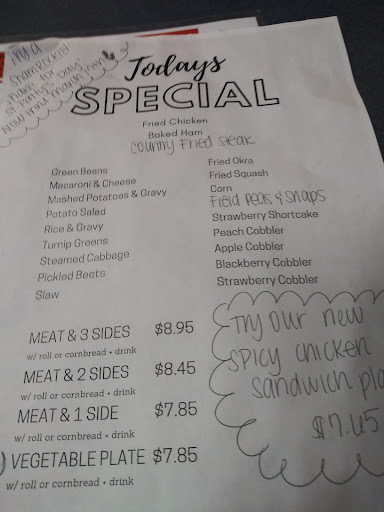 Shamrockin'
Shake for
St Patty's Day!
now thru March
Todays
SPECIAL
Fried Chicken
Baked Ham
Country Fried Steak
Green Beans
Macaroni & Cheese
Mashed Potatoes & Gravy
Potato Salad
Rice & Gravy
Turnip Greens
Steamed Cabbage
Pickled Beets
Slaw
Fried Okra
Fried Squash
Corn
Field Peas & Snaps
Strawberry Shortcake
Peach Cobbler
Apple Cobbler
Blackberry Cobbler
Strawberry Cobbler
MEAT & 3 SIDES $8.95
w/ roll or cornbread + drink
MEAT & 2 SIDES $8.45
w/ roll or cornbread + drink
MEAT & 1 SIDE $7.85
w/ roll or cornbread + drink
) VEGETABLE PLATE $7.85
w/ roll or cornbread + drink
Try our new
spicy chicken
sandwich pla
$7.45